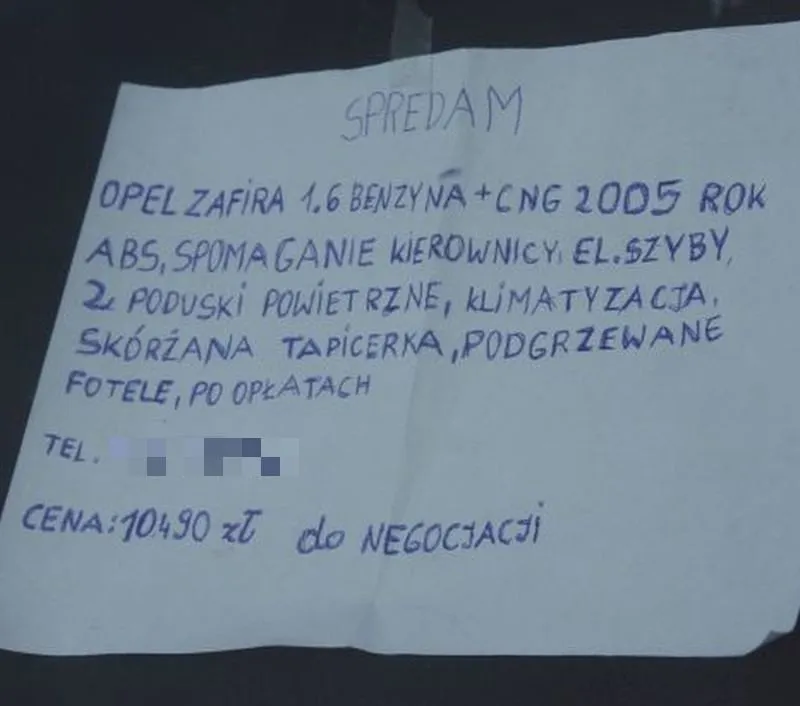 SPREDAM
OPEL ZAFIRA 1.6 BENZYNA + CNG 2005 ROK
ABS, SPOMAGANIE KIEROWNICY, EL. SZYBY,
2 PODUSKI POWIETRZNE, KLIMATYZACJA,
SKÓRŻANA TAPICERKA, PODGRZEWANE
FOTELE, PO OPŁATACH
TEL.
CENA: 10490 zł do NEGOCJACJI